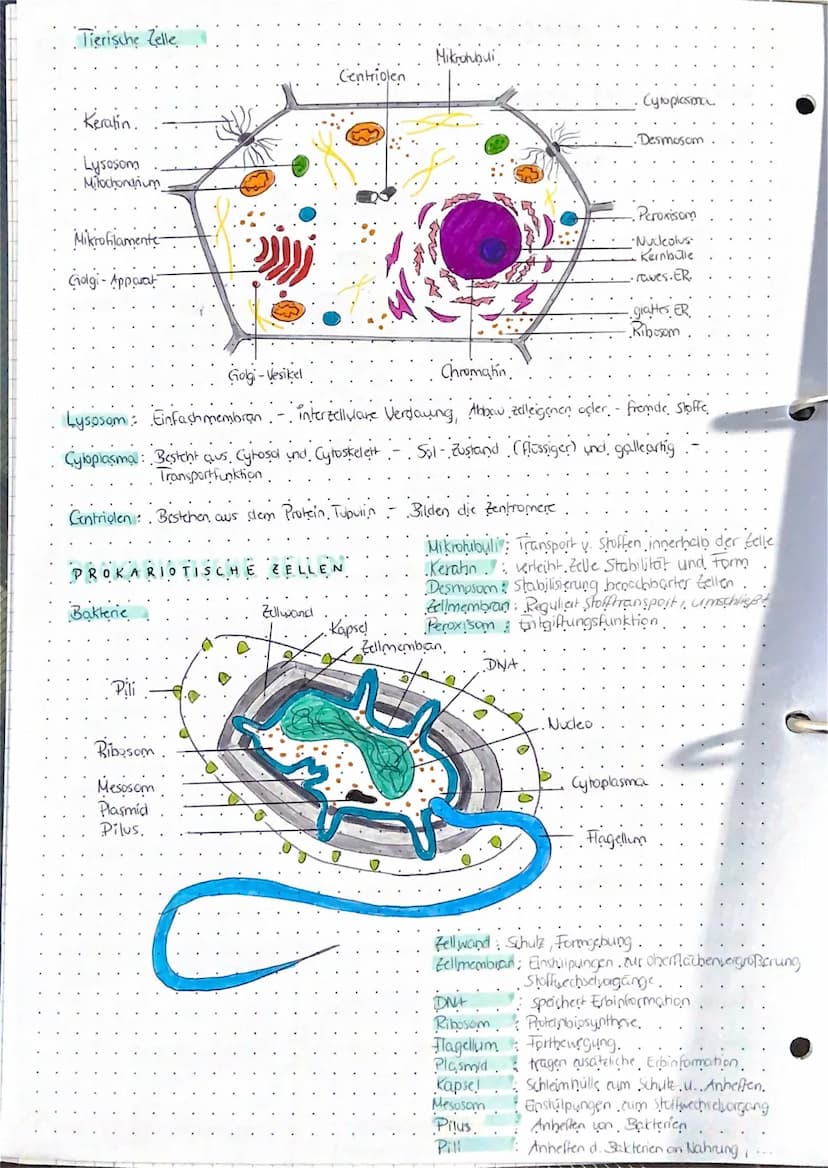 Tierische Zelle
Mikrotubuli
Centriolen
Cytoplasma
Keratin
Desmosom
Lysosom
Mitochondrium
Peroxisom
Mikrofilamente
Nucleolus
Kernhülle
Golgi-Apparat
raues ER
glattes ER
Ribosom
Golgi-Vesikel
Chromatin
Lysosom: Einfachmembran - interzelluläre Verdauung, Abbau zelleigenen oder - fremde Stoffe
Cytoplasma: Besteht aus Cytosol und Cytoskelett - Sol-Zustand (flüssiger) und gallertig -
Transportfunktion
Centriolen: Bestehen aus dem Protein Tubulin - Bilden die Zentromere
Mikrotubuli: Transport v. Stoffen innerhalb der Zelle
Keratin: verleiht Zelle Stabilität und Form
PROKARIOTISCHE ZELLEN
Desmosom: Stabilisierung benachbarter Zellen
Zellmembran: Reguliert Stofftransport, umschließt
Peroxisom: Entgiftungsfunktion
Bakterie
Zellwand
Kapsel
Zellmembran
DNA
Pili
Nucleo
Ribosom
Mesosom
Cytoplasma
Plasmid
Pilus
Flagellum
Zellwand: Schutz, Formgebung
Zellmembran: Einstülpungen zur Oberflächenvergrößerung
Stoffwechselvorgänge
DNA: speichert Erbinformation
Ribosom: Proteinbiosynthese
Flagellum: Fortbewegung
Plasmid: tragen zusätzliche Erbinformation
Kapsel: Schleimhülle zum Schutz u. Anheften
Mesosom: Einstülpungen zum Stoffwechselvorgang
Pilus: Anheften von Bakterien
Pili: Anheften d. Bakterien an Nahrung, ...